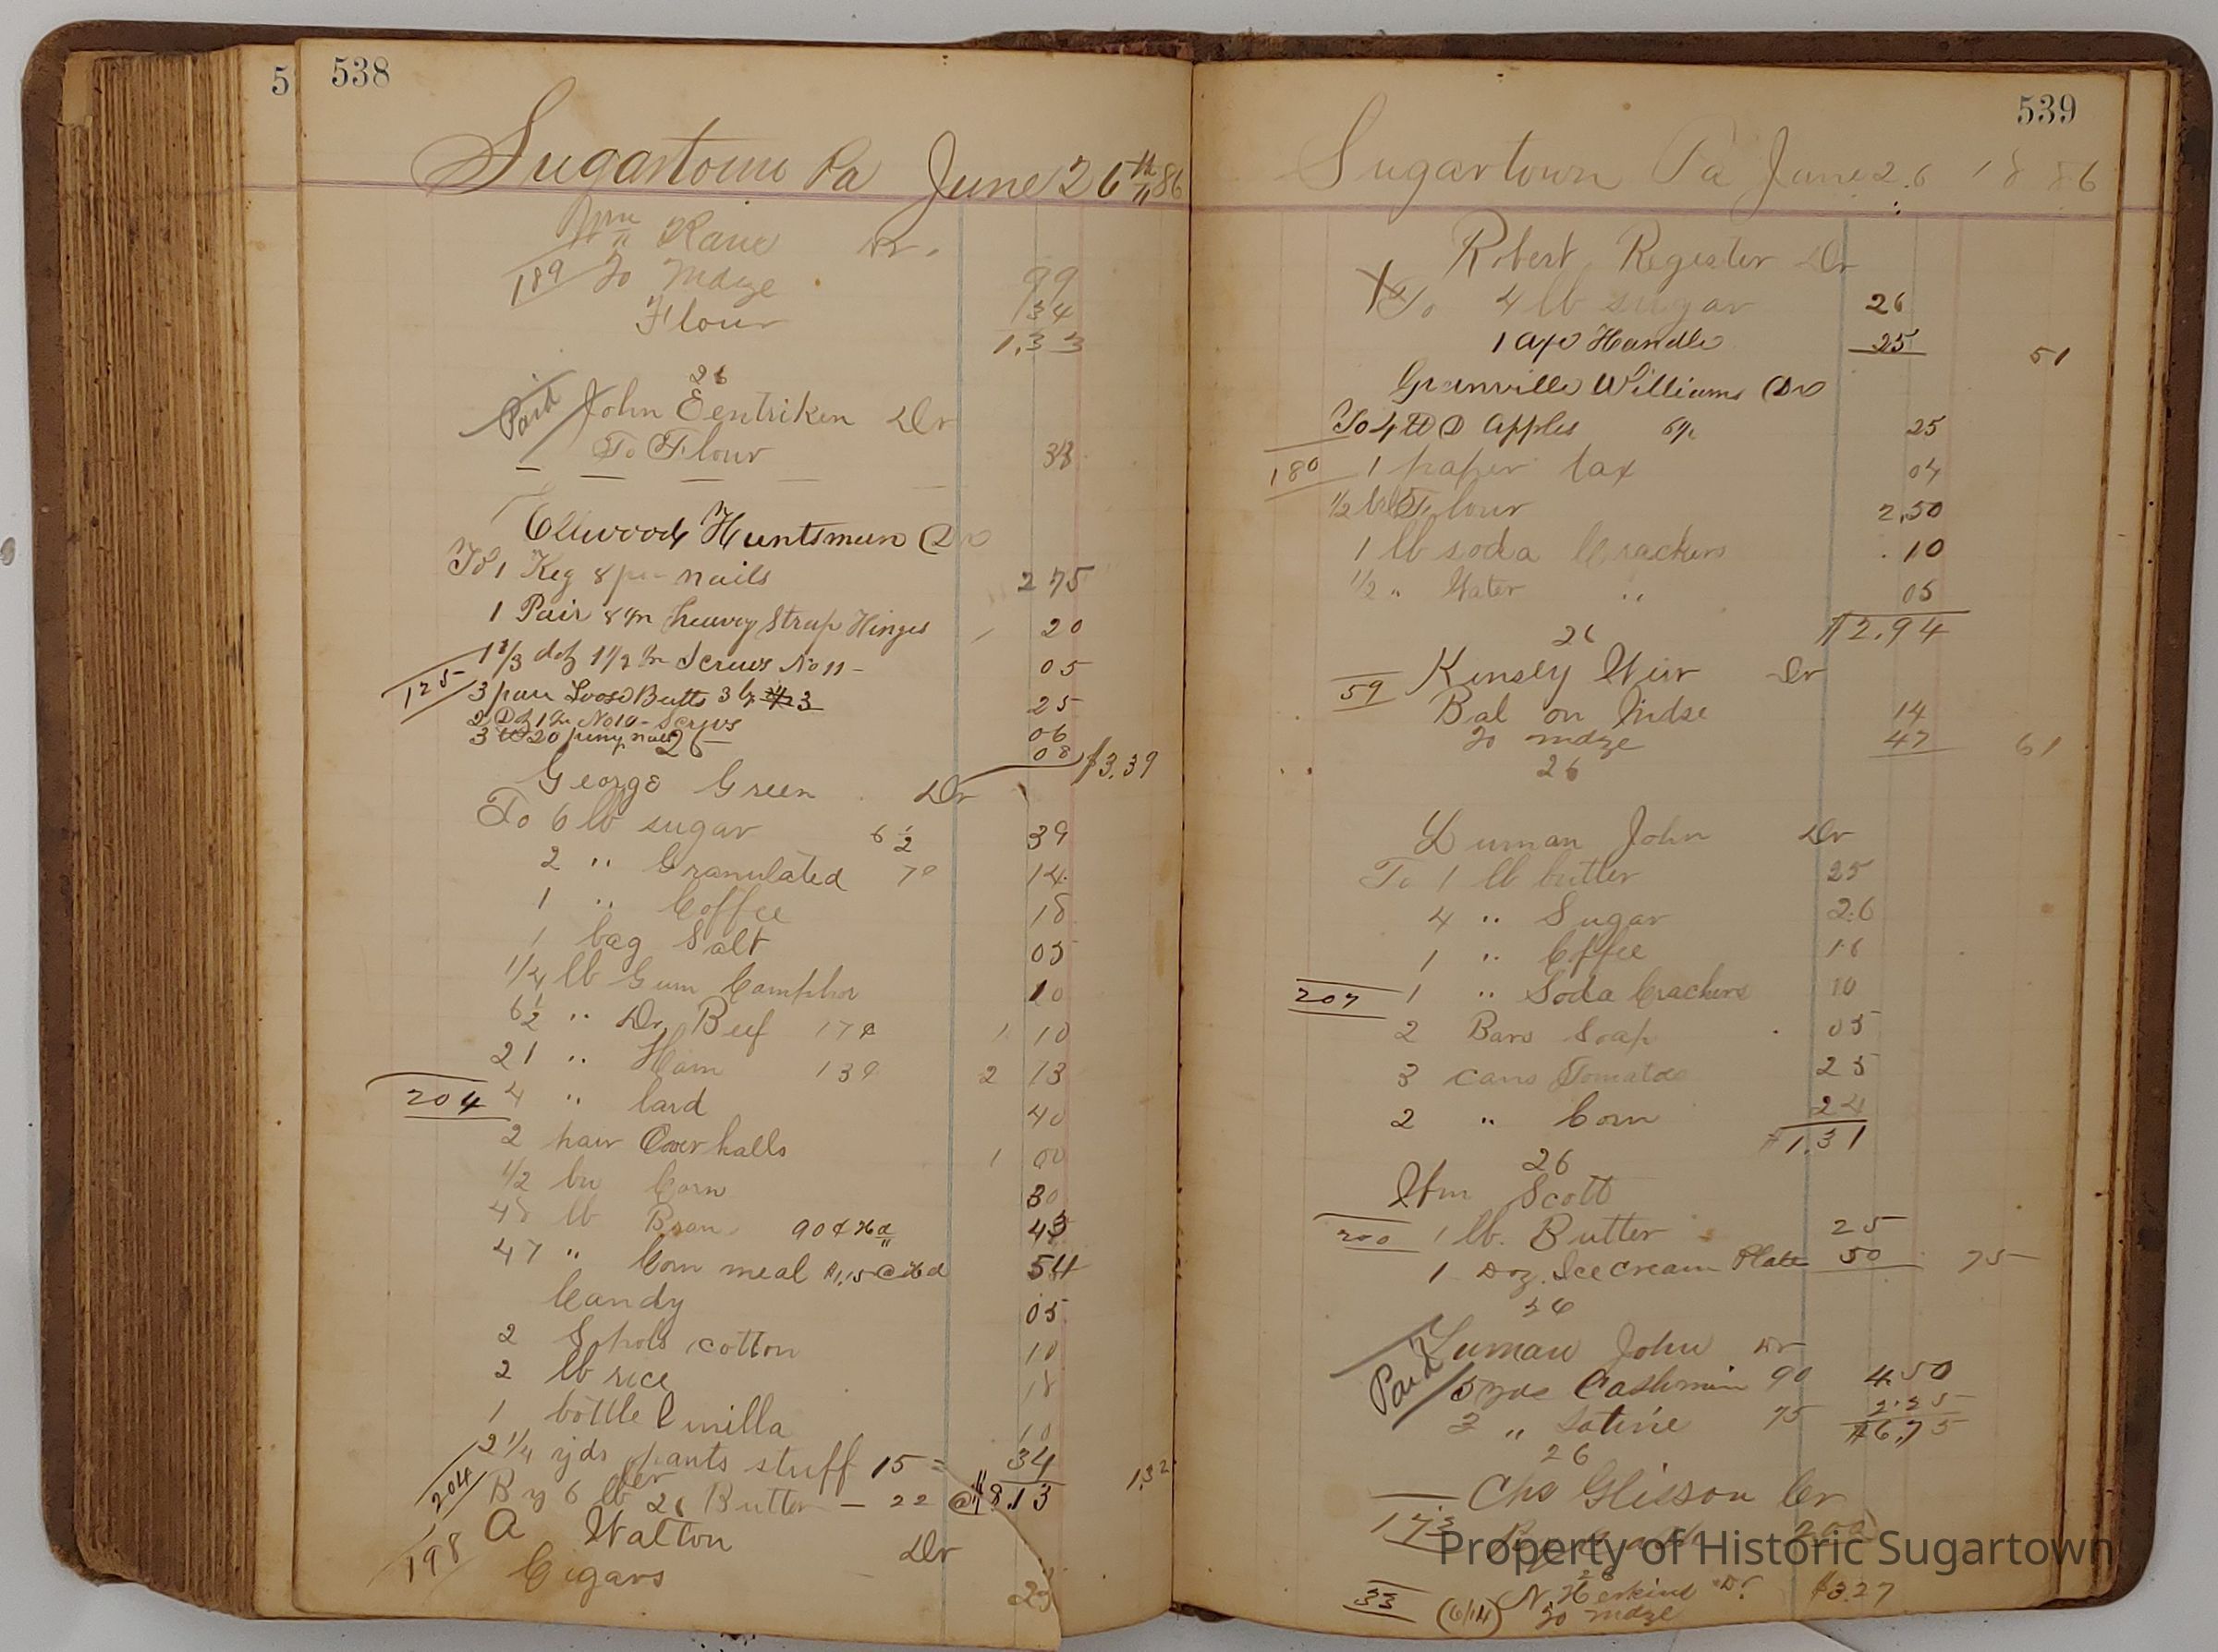 5
538
Sugartown Pa June 26th 86
Wm Kane Dr.
189 To Mdze 99
Flour 34
1.33
26
Paid John Eentriken Dr
To Flour 38
Ellwood Huntsman Dr
To 1 Keg 8 nails 2 75
1 Pair 8 in heavy Strap Hinges 20
1 1/3 doz 1 1/2 in Screws No 11 - 05
125 3 pair Loose Butts 3 by 3 25
2 Doz 1 in No 10 - Screws 06
3 lb 20 peny nails 08 $3.39
26
George Green Dr
To 6 lb sugar 6 1/2 39
2 " Granulated 7c 14
1 " Coffee 18
1 bag Salt 05
1/4 lb Gum Camphor 10
6 1/2 " Dr Beef 17¢ 1 10
21 " Ham 13c 2 73
204 4 " lard 40
2 pair Over halls 1 00
1/2 bu Corn 30
48 lb Bran 90¢ Hd 43
47 " Corn meal $1.15 @ Hd 54
Candy 05
2 Spols cotton 10
2 lb rice 18
1 bottle 10
2 1/4 yds pants stuff 15 = 34
$8.13
204 By 6 lb Butter - 22 @ 1.32
26
198 A Walton Dr
Cigars 25
539
Sugartown Pa June 26 1886
Robert Register Dr
X To 4 lb sugar 26
1 Axe Handle 25 51
Granville Williams Dr
To 4 lb D Apples 25
180 1 paper tax 04
1/2 bbl Flour 2,50
1 lb soda Crackers .10
1/2 " Water " 05
$2.94
26
59 Kinsey Weir Dr
Bal on Mdse 14
To mdze 47 61
26
Luman John Dr
To 1 lb butter 25
4 " Sugar 26
1 " Coffee 16
207 1 " Soda Crackers 10
2 Bars Soap 05
3 cans Tomatoe 25
2 " Corn 24
$1.31
26
Wm Scott
200 1 lb. Butter 25
1 Doz. Ice cream Plate 50 75
26
Paid Luman John Dr
5 yds Cashmir 90 4.50
3 " Satine 75 2.25
$6.75
26
Chs Glisson Cr
173 By cash 200
26
33 (6/14) N. Herkins Dr. $3.27
To mdze
Property of Historic Sugartown